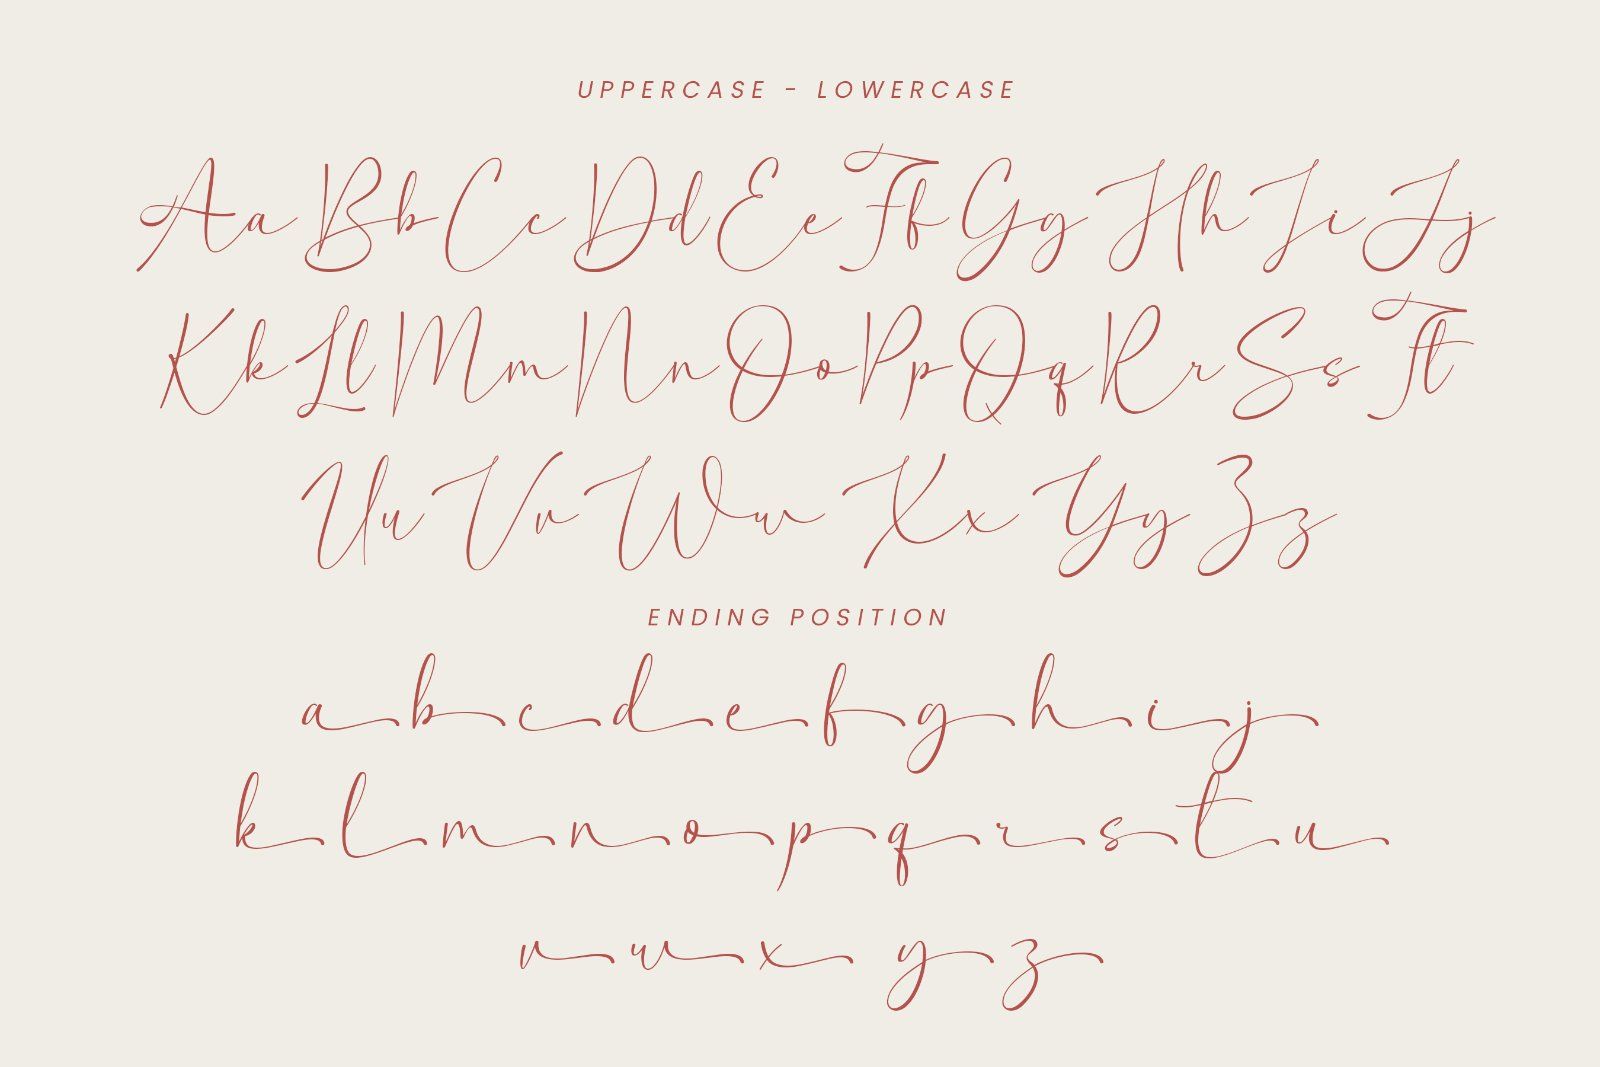 UPPERCASE - LOWERCASE
Aa Bb Cc Dd Ee Ff Gg Hh Ii Jj
Kk Ll Mm Nn Oo Pp Qq Rr Ss Tt
Uu Vv Ww Xx Yy Zz
ENDING POSITION
a b c d e f g h i j
k l m n o p q r s t u
v w x y z